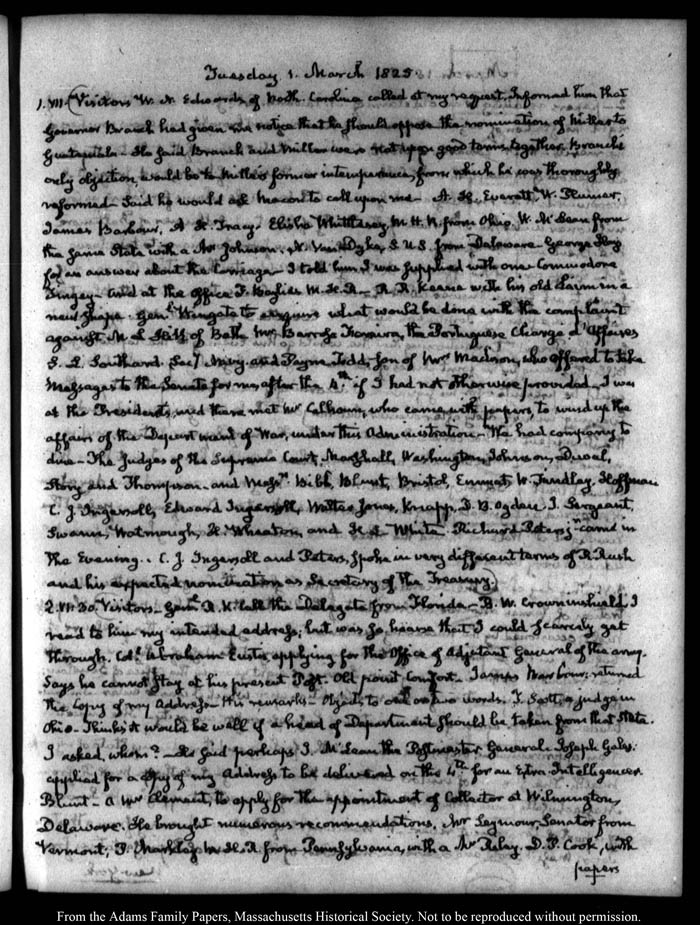 Tuesday 1. March 1825
1. VII. Visitors W. N. Edwards of North. Carolina called at my request. Informed him that
Governor Branch had given me notice that he should oppose the nomination of Miller to
Guatemala. He said Branch and Miller were not upon good terms together. Branch's
only objection, would be to Miller's former intemperance, from which he was thoroughly
reformed. Said he would ask Macon to call upon me. A. H. Everett, W. Plumer,
James Barbour, A. H. Tracy. Elisha Whittlesey M. H. R from Ohio. W. McLean from
the same State with a Mr Johnson. N. Van Dyke, S. U. S. from Delaware. George Hay
for an answer about the Carriage. I told him I was supplied with one. Commodore
Tingey. And at the Office F. Baylies M. H. R. R. R. Keene with his old Claim in a
new shape. Genl. Wingate to enquire what would be done with the complaint
against M. L. Hill of Bath. Mr. Barrozo Pereira, the Portuguese Chargé d'Affaires
S. L. Southard. Secy. Navy. and Payne Todd, Son of Mrs Madison, who offered to take
Messages to the Senate for me, after the 4th. if I had not otherwise provided. I was
at the President's, and there met Mr Calhoun, who came with papers, to wind up the
affairs of the Department of War, under this Administration. We had company to
dine. The Judges of the Supreme Court, Marshall, Washington, Johnson, Duval,
Story and Thompson. and Messrs. Bibb, Blunt, Bristol, Emmet, W. Findlay, Hoffman
C. J. Ingersoll, Edward Ingersoll, Walter Jones, Knapp, D. B. Ogden, J. Sergeant,
Swann, Watmough, H. Wheaton, and H. L. White. Richard Peters jr. came in
the Evening. C. J. Ingersoll and Peters, spoke in very different terms of R. Rush
and his expected nomination as Secretary of the Treasury.
2. VII. 30. Visitors. Genl. R. K. Call the Delegate from Florida. B. W. Crowninshield. I
read to him my intended address; but was so hoarse that I could scarcely get
through. Col. Abraham Eustis, applying for the Office of Adjutant General of the army.
Says he cannot stay at his present Post. Old point Comfort. James Barbour, returned
the Copy of my Address. His remarks. Objects to one or two words. T. Scott, a judge in
Ohio. Thinks it would be well if a head of Department should be taken from that State.
I asked, whom? He said perhaps J. McLean the Postmaster General. Joseph Gales.
applied for a Copy of my Address to be delivered on the 4th for an Extra Intelligencer.
Blunt. A Mr Clement, to apply for the appointment of Collector at Wilmington,
Delaware. He brought numerous recommendations. Mr Seymour, Senator from
Vermont, P. Markley M. H. R. from Pennsylvania, with a Mr Raley. D. P. Cook, with
papers
From the Adams Family Papers, Massachusetts Historical Society. Not to be reproduced without permission.